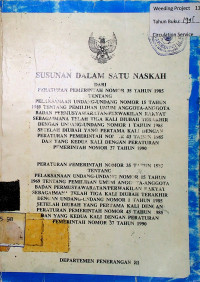 Weeding Project
Tahun Buku: 1985
Circulation Service
SUSUNAN DALAM SATU NASKAH
DARI
PERATURAN PEMERINTAH NOMOR 35 TAHUN 1985
TENTANG
PELAKSANAAN UNDANG-UNDANG NOMOR 15 TAHUN
1969 TENTANG PEMILIHAN UMUM ANGGOTA-ANGGOTA
BADAN PERMUSYAWARATAN/PERWAKILAN RAKYAT
SEBAGAIMANA TELAH TIGA KALI DIUBAH TERAKHIR
DENGAN UNDANG-UNDANG NOMOR 1 TAHUN 1985
SETELAH DIUBAH YANG PERTAMA KALI DENGAN
PERATURAN PEMERINTAH NOMOR 43 TAHUN
DAN YANG KEDUA KALI DENGAN PERATURAN
PEMERINTAH NOMOR 37 TAHUN 1990
PERATURAN PEMERINTAH NOMOR TAHUN
TENTANG
PELAKSANAAN UNDANG-UNDANG NOMOR 15 TAHUN
1969 TENTANG PEMILIHAN UMUM ANGGOTA-ANGGOTA
BADAN PERMUSYAWARATAN/PERWAKILAN RAKYAT
SEBAGAIMANA TELAH TIGA KALI DIUBAH TERAKHIR
DENGAN UNDANG-UNDANG NOMOR 1 TAHUN 1985
SETELAH DIUBAH YANG PERTAMA KALI DENGAN
PERATURAN PEMERINTAH NOMOR 43 TAHUN
DAN YANG KEDUA KALI DENGAN PERATURAN
PEMERINTAH NOMOR 37 TAHUN 1990
DEPARTEMEN PENERANGAN RI